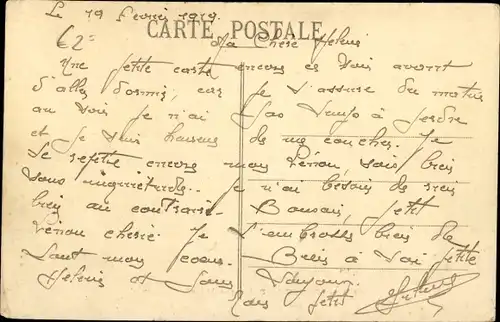 Le 19 février 1919.
CARTE POSTALE
62=
Ma Chère Helene
Une petite carte encore ce soir avant
d'aller dormir, car je t'assure du matin
au soir je n'ai pas temps à perdre
et je suis heureux de me coucher. Je
te repette encore mon Nénou, sois bien
sans inquiétude. Je n'ai besoin de rien
bien au contraire. Bonsoir, petit
Nénou cherie. Je t'embrasse bien de
tout mon coeur. Bien à toi petite
Helene et pour toujours.
Ton petit